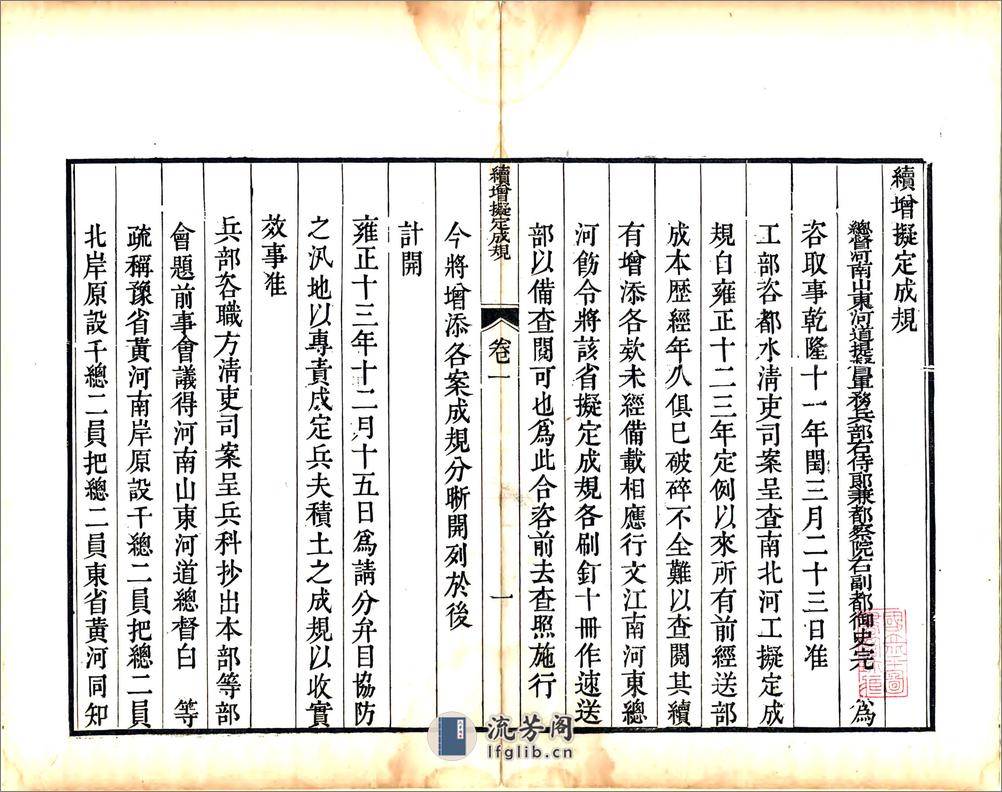 續增擬定成規
總督河南山東河道提督軍務兵部右侍郎兼都察院右副都御史完 爲
咨取事乾隆十一年閏三月二十三日准
工部咨都水清吏司案呈查南北河工擬定成
規自雍正十二三年定例以來所有前經送部
成本歷經年久俱已破碎不全難以查閱其續
有增添各欵未經備載相應行文江南河東總
河飭令將該省擬定成規各刷釘十冊作速送
部以備查閱可也爲此合咨前去查照施行
續增擬定成規 卷一 一
今將增添各案成規分晰開列於後
計開
雍正十三年十二月十五日爲請分弁目協防
之汛地以專責成定兵夫積土之成規以收實
效事准
兵部咨職方清吏司案呈兵科抄出本部等部
會題前事會議得河南山東河道總督白 等
疏稱豫省黃河南岸原設千總二員把總二員
北岸原設千總二員把總二員東省黃河同知
流芳阁
lfglib.cn